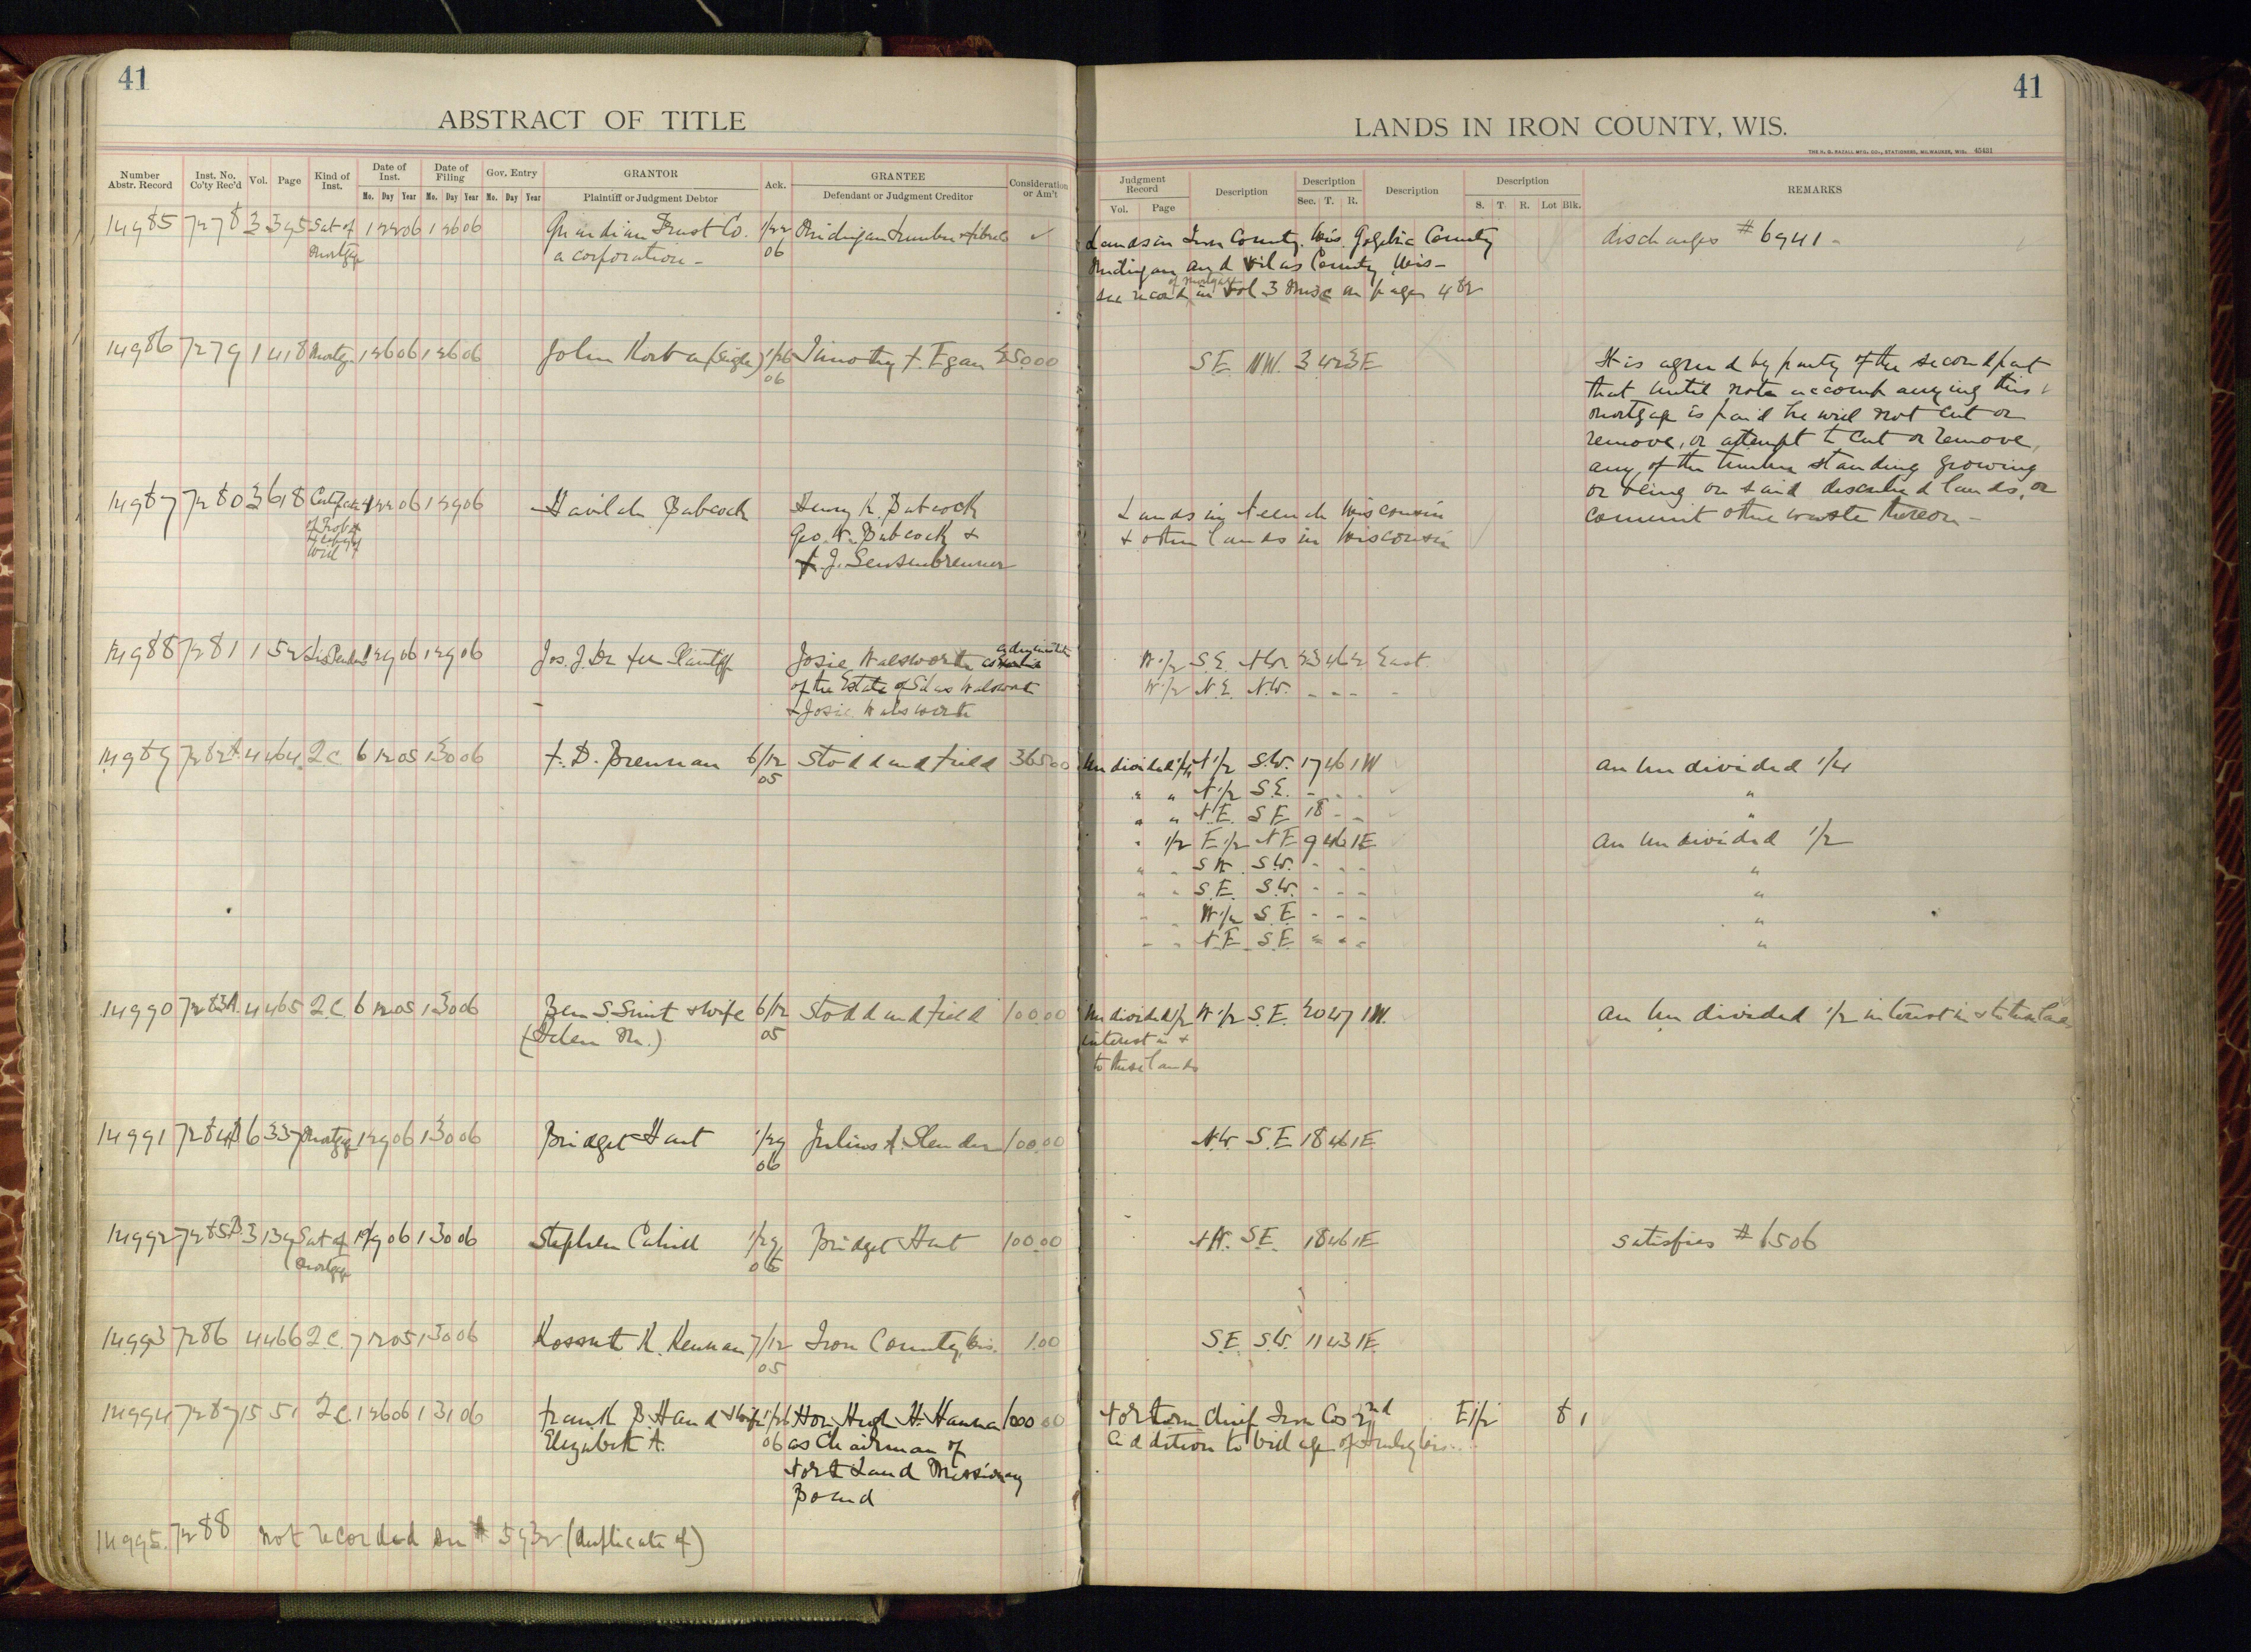 41
ABSTRACT OF TITLE
Number Abstr. Record
Inst. No. Co'ty Rec'd
Vol.
Page
Kind of Inst.
Date of Inst.
Mo. Day Year
Date of Filing
Mo. Day Year
Gov. Entry
Mo. Day Year
GRANTOR
Plaintiff or Judgment Debtor
Ack.
GRANTEE
Defendant or Judgment Creditor
Consideration or Am't
14985 7278 3 395 Sat of 1 22 06 1 26 06 Guardian Trust Co. 1/22 Michigan Lumber + 
Mortgage a corporation - 06
14986 7279 1 418 Mortg 1 26 06 1 26 06 John (Single) 1/26 Timothy F. Egan 250.00
06
14987 7280 3 618 1 22 06 1 29 06 Havilah Babcock Henry K. Babcock
of Geo. W. Babcock +
Will F. J. Sensenbrenner
14988 7281 1 52 Lis Pendens 1 29 06 1 29 06 Jos. J. Plaintiff Josie Walsworth administratrix
of the Estate of Silas Walsworth
+ Josie Walsworth
14989 7282 4 464 2C 6 12 05 1 30 06 F. D. Brennan 6/12 Stoddard Field 365.00
05
14990 7283A 4 465 2C 6 12 05 1 30 06 Ben S. Smit + wife 6/12 Stoddard Field 100.00
(Helen M.) 05
14991 7284 6 337 Mortgage 1 29 06 1 30 06 Bridget Hart 1/29 Julius A. 100.00
06
14992 7285B 3 139 Sat of 1 29 06 1 30 06 Stephen Cahill 1/29 Bridget Hart 100.00
Mortgage 06
14993 7286 4 466 2C 7 12 05 1 30 06 Kossuth K. Kennan 7/12 Iron County, Wis. 1.00
05
14994 7287 15 51 2C 1 26 06 1 31 06 Frank B. Hand + wife 1/26 Hon. Hugh H. Hanna 1000.00
Elizabeth A. 06 as Chairman of
North Land Missionary
Board
14995 7288 not recorded see # 5932 (duplicate of)
41
LANDS IN IRON COUNTY, WIS.
THE H. G. RAZALL MFG. CO., STATIONERS, MILWAUKEE, WIS. 45431
Judgment Record
Vol. Page
Description
Description
Sec. T. R.
Description
Description
S. T. R. Lot Blk.
REMARKS
Lands in Iron County, Wis. Gogebic County discharges # 6941 -
Michigan and Vilas County Wis -
of mortgage
see record in Vol 3 Misc on page 482
SE NW. 3 42 3E It is agreed by party of the second part
that until note accompanying this
mortgage is paid he will not cut or
remove, or attempt to cut or remove,
any of the timber standing growing
or being on said described lands, or
commit other waste thereon -
Lands in Neenah Wisconsin
+ other lands in Wisconsin
W 1/2 S.E. 46 2 East
W 1/2 N.E. N.W. - - -
Undivided 1/4 N 1/2 S.W. 17 46 1W an undivided 1/4
" " N 1/2 S.E. - - - "
" " N.E. S E 18 - - "
" 1/2 E 1/2 N E 9 46 1E an undivided 1/2
" " S W S.W. - - - "
" " S E S.W. - - - "
" " W 1/2 S E - - - "
" " N E S E - - - "
Undivided 1/2 W 1/2 S.E. 30 47 1W. an undivided 1/2 interest in + to these lands
interest in +
to these lands
N.W. S.E 18 46 1E
N W. S.E. 18 46 1E satisfies # 6506
S.E. S.W. 11 43 1E
Northern Chief Iron Cos 2nd E 1/2 8 1
addition to village of Hurley Wis.